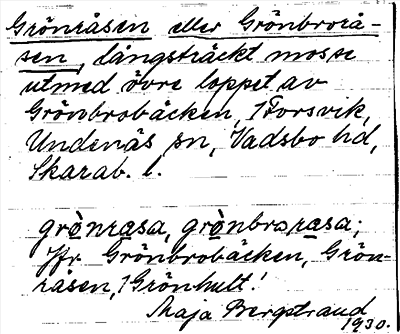 Grönråsen eller Grönbrorå-
sen, långsträckt mosse
utmed övre loppet av
Grönbrobäcken, 1 Forsvik,
Undenäs sn, Vadsbo hd,
Skarab. l.
grö̀nråsa, grö̀nbroråsa;
Jfr Grönbrobäcken, Grön-
råsen, 1 Grönhult!
Maja Bergstrand
1930.